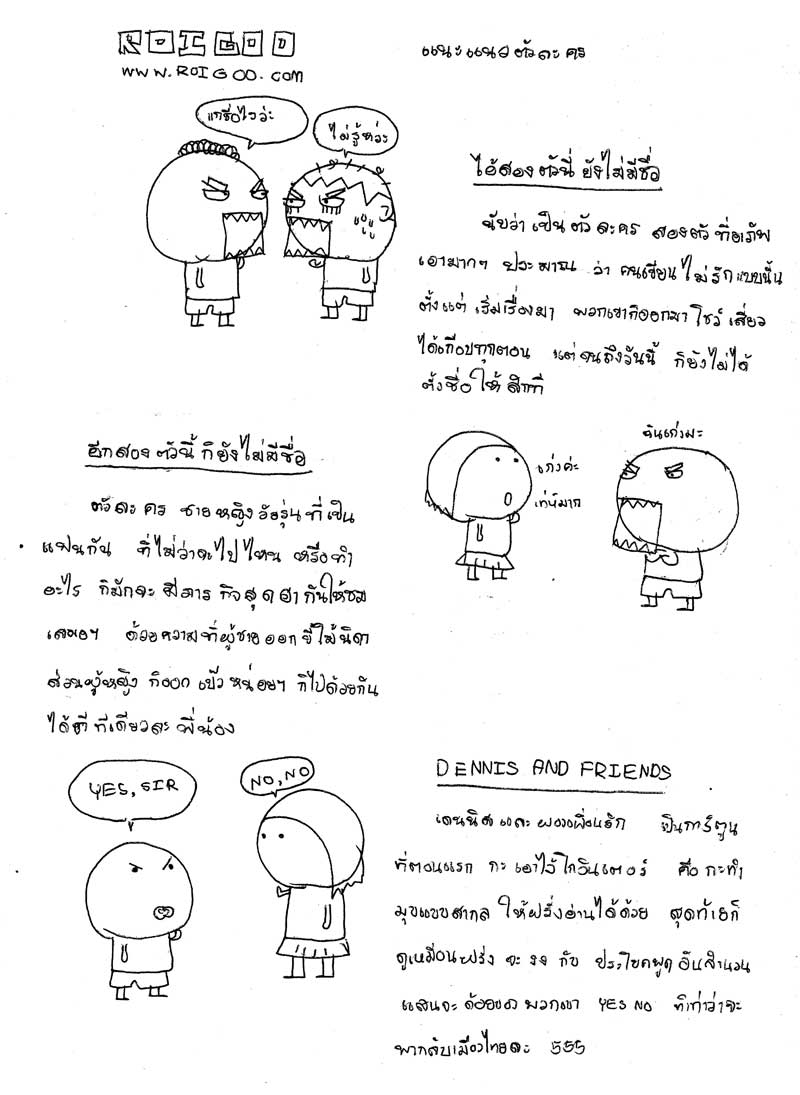 ROIGOO
WWW.ROIGOO.COM
แนะแนวตัวละคร
แกชื่อไรว่ะ
ไม่รู้หว่ะ
ไอ้สองตัวนี้ ยังไม่มีชื่อ
นับว่า เป็นตัวละคร สองตัว ที่อาภัพ
เอามากๆ ประมาณ ว่า คนเขียนไม่รักแบบนั้น
ตั้งแต่ เริ่มเรื่องมา พวกเขาก็ออกมาโชว์ เสี่ยว
ได้เกือบทุกตอน แต่จนถึงวันนี้ ก็ยังไม่ได้
ตั้งชื่อให้ สักที
อีกสองตัวนี้ ก็ยังไม่มีชื่อ
ตัวละคร ชายหญิง วัยรุ่นที่เป็น
แฟนกัน ที่ไม่ว่าจะไปไหน หรือทำ
อะไร ก็มักจะ มีภารกิจสุดฮา กันให้ชม
เสมอๆ ด้วยความที่ผู้ชาย ออก ขี้โม้นิดๆ
ส่วนผู้หญิง ก็ออก แบ๊ว หน่อยๆ ก็ไปด้วยกัน
ได้ดี ทีเดียวละ พี่น้อง
เก่งค่ะ
เท่ห์มาก
ฉันเก่งมะ
YES, SIR
NO, NO
DENNIS AND FRIENDS
เดนนิส และ ผองเพื่อนรัก เป็นการ์ตูน
ที่ตอนแรก กะเอาไว้โกอินเตอร์ คือ กะทำ
มุขแบบสากล ให้ฝรั่งอ่านได้ด้วย สุดท้ายก็
ดูเหมือนฝรั่ง จะ งง กับ ประโยคพูด อันสำนวน
แสนจะ ด้อยของ พวกเขา YES NO ทีเท่าว่าจะ
พากลับเมืองไทยละ 555